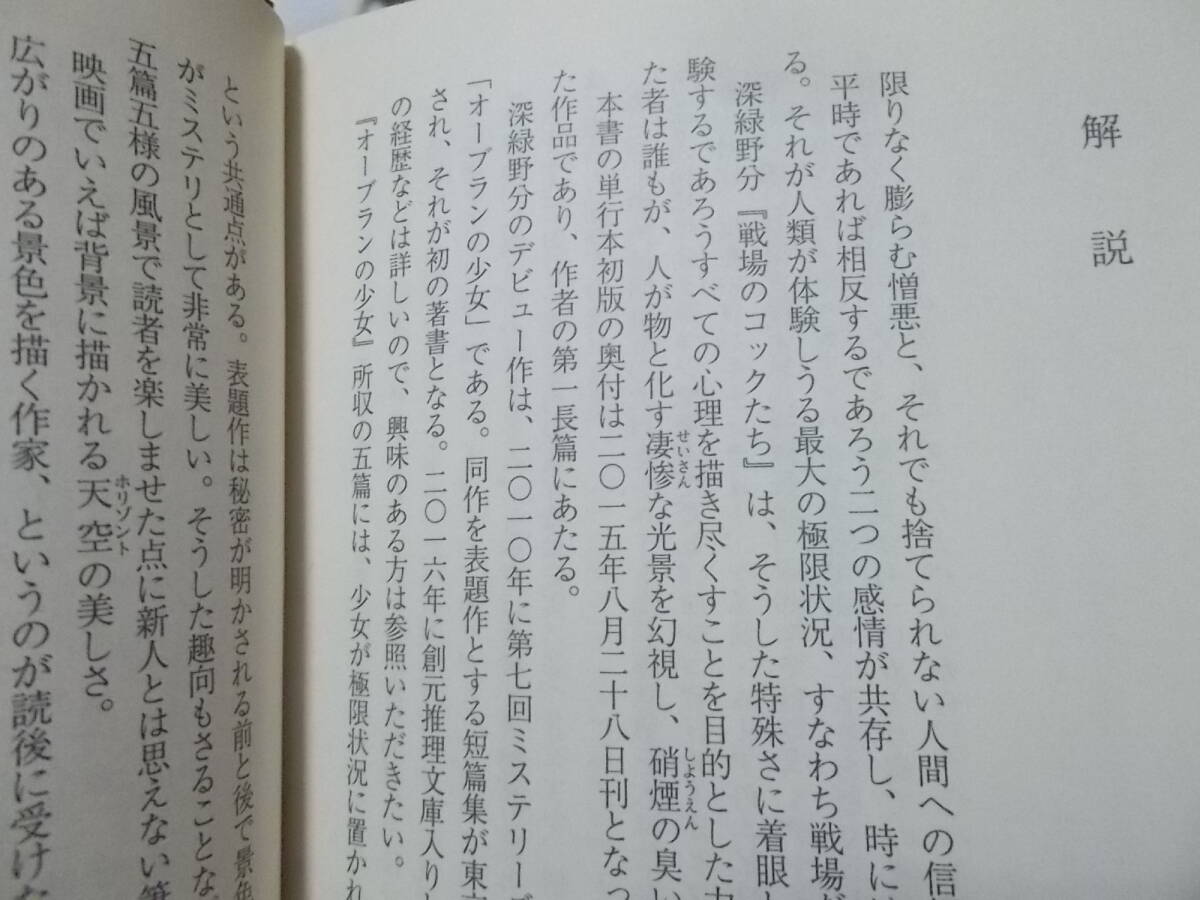 解説
限りなく膨らむ憎悪と、それでも捨てられない人間への信
平時であれば相反するであろう二つの感情が共存し、時には
る。それが人類が体験しうる最大の極限状況、すなわち戦場が
深緑野分『戦場のコックたち』は、そうした特殊さに着眼し
験するであろうすべての心理を描き尽くすことを目的とした力
た者は誰もが、人が物と化す凄惨な光景を幻視し、硝煙の臭い
せいさん
しょうえん
本書の単行本初版の奥付は二〇一五年八月二十八日刊となっ
た作品であり、作者の第一長篇にあたる。
深緑野分のデビュー作は、二〇一〇年に第七回ミステリーズ
「オーブランの少女」である。同作を表題作とする短篇集が東京
され、それが初の著書となる。二〇一六年に創元推理文庫入りし
の経歴などは詳しいので、興味のある方は参照いただきたい。
『オーブランの少女』所収の五篇には、少女が極限状況に置かれ
という共通点がある。表題作は秘密が明かされる前と後で景色
がミステリとして非常に美しい。そうした趣向もさることな
五篇五様の風景で読者を楽しませた点に新人とは思えない筆
映画でいえば背景に描かれる天空の美しさ。
ホリゾント
広がりのある景色を描く作家、というのが読後に受けた